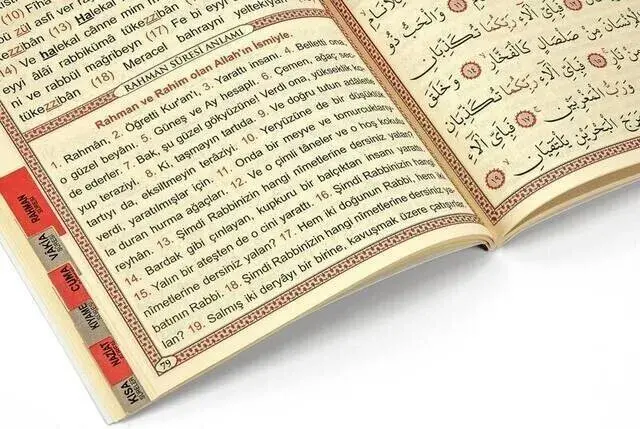 bû zül asfi ver
(13) Ve halekal canne mim
eyyi âlâi rabbikümâ tükezzibân
ni ve rabbül mağribeyn (17) Fe bi eyyi
tükezzibân (18) Meracel bahrayni yeltekıyân
RAHMAN SÛRESİ ANLAMI
Rahman ve Rahim olan Allah'ın İsmiyle.
1. Rahmân, 2. Öğretti Kur'an'ı, 3. Yarattı insanı, 4. Belletti ona,
o güzel beyânı. 5. Güneş ve Ay hesaplı. 6. Çemen, ağaç sec-
de ederler. 7. Bak, şu güzel gökyüzüne! Verdi ona, yükseklik ko-
yup teraziyi. 8. Ki, taşmayın tartıda. 9. Ve doğru tutun adâletle
tartıyı da, eksiltmeyin teraziyi. 10. Yeryüzüne de bir düşüklük
verdi, yaratılmışlar için; 11. Onda bir meyve ve tomurcuklanıp
duran hurma ağaçları; 12. Ve o çimli tâneler ve o hoş kokulu
reyhân. 13. Şimdi Rabbinizin hangi nîmetlerine dersiniz yalan?
14. Bardak gibi çınlayan, kupkuru bir balçıktan insanı yarattı,
15. Yalın bir ateşten de o cini yarattı. 16. Şimdi Rabbinizin hangi
nîmetlerine dersiniz yalan? 17. Hem iki doğunun Rabbi, hem iki
batının Rabbi. 18. Şimdi Rabbinizin hangi nîmetlerine dersiniz ya-
lan? 19. Salmış iki deryâyı bir birine, kavuşmak üzere çatışırlar.
79
RAHMAN SÛRESİ
VAKIA SÛRESİ
CUMA SÛRESİ
KIYAME SÛRESİ
NAZİAT SÛRESİ
KISA SÛRELER
وَالْحَبُّ ذُو
فَبِأَيِّ آلَاءِ رَبِّكُمَا تُكَذِّبَانِ
مِنْ صَلْصَالٍ كَالْفَخَّارِ ﴿١٤﴾ وَخَلَقَ
فَبِأَيِّ آلَاءِ رَبِّكُمَا تُكَذِّبَانِ
وَرَبُّ الْمَغْرِبَيْنِ ﴿١٧﴾ فَبِأَيِّ آلَاءِ
الْبَحْرَيْنِ يَلْتَقِيَانِ ﴿١٩﴾